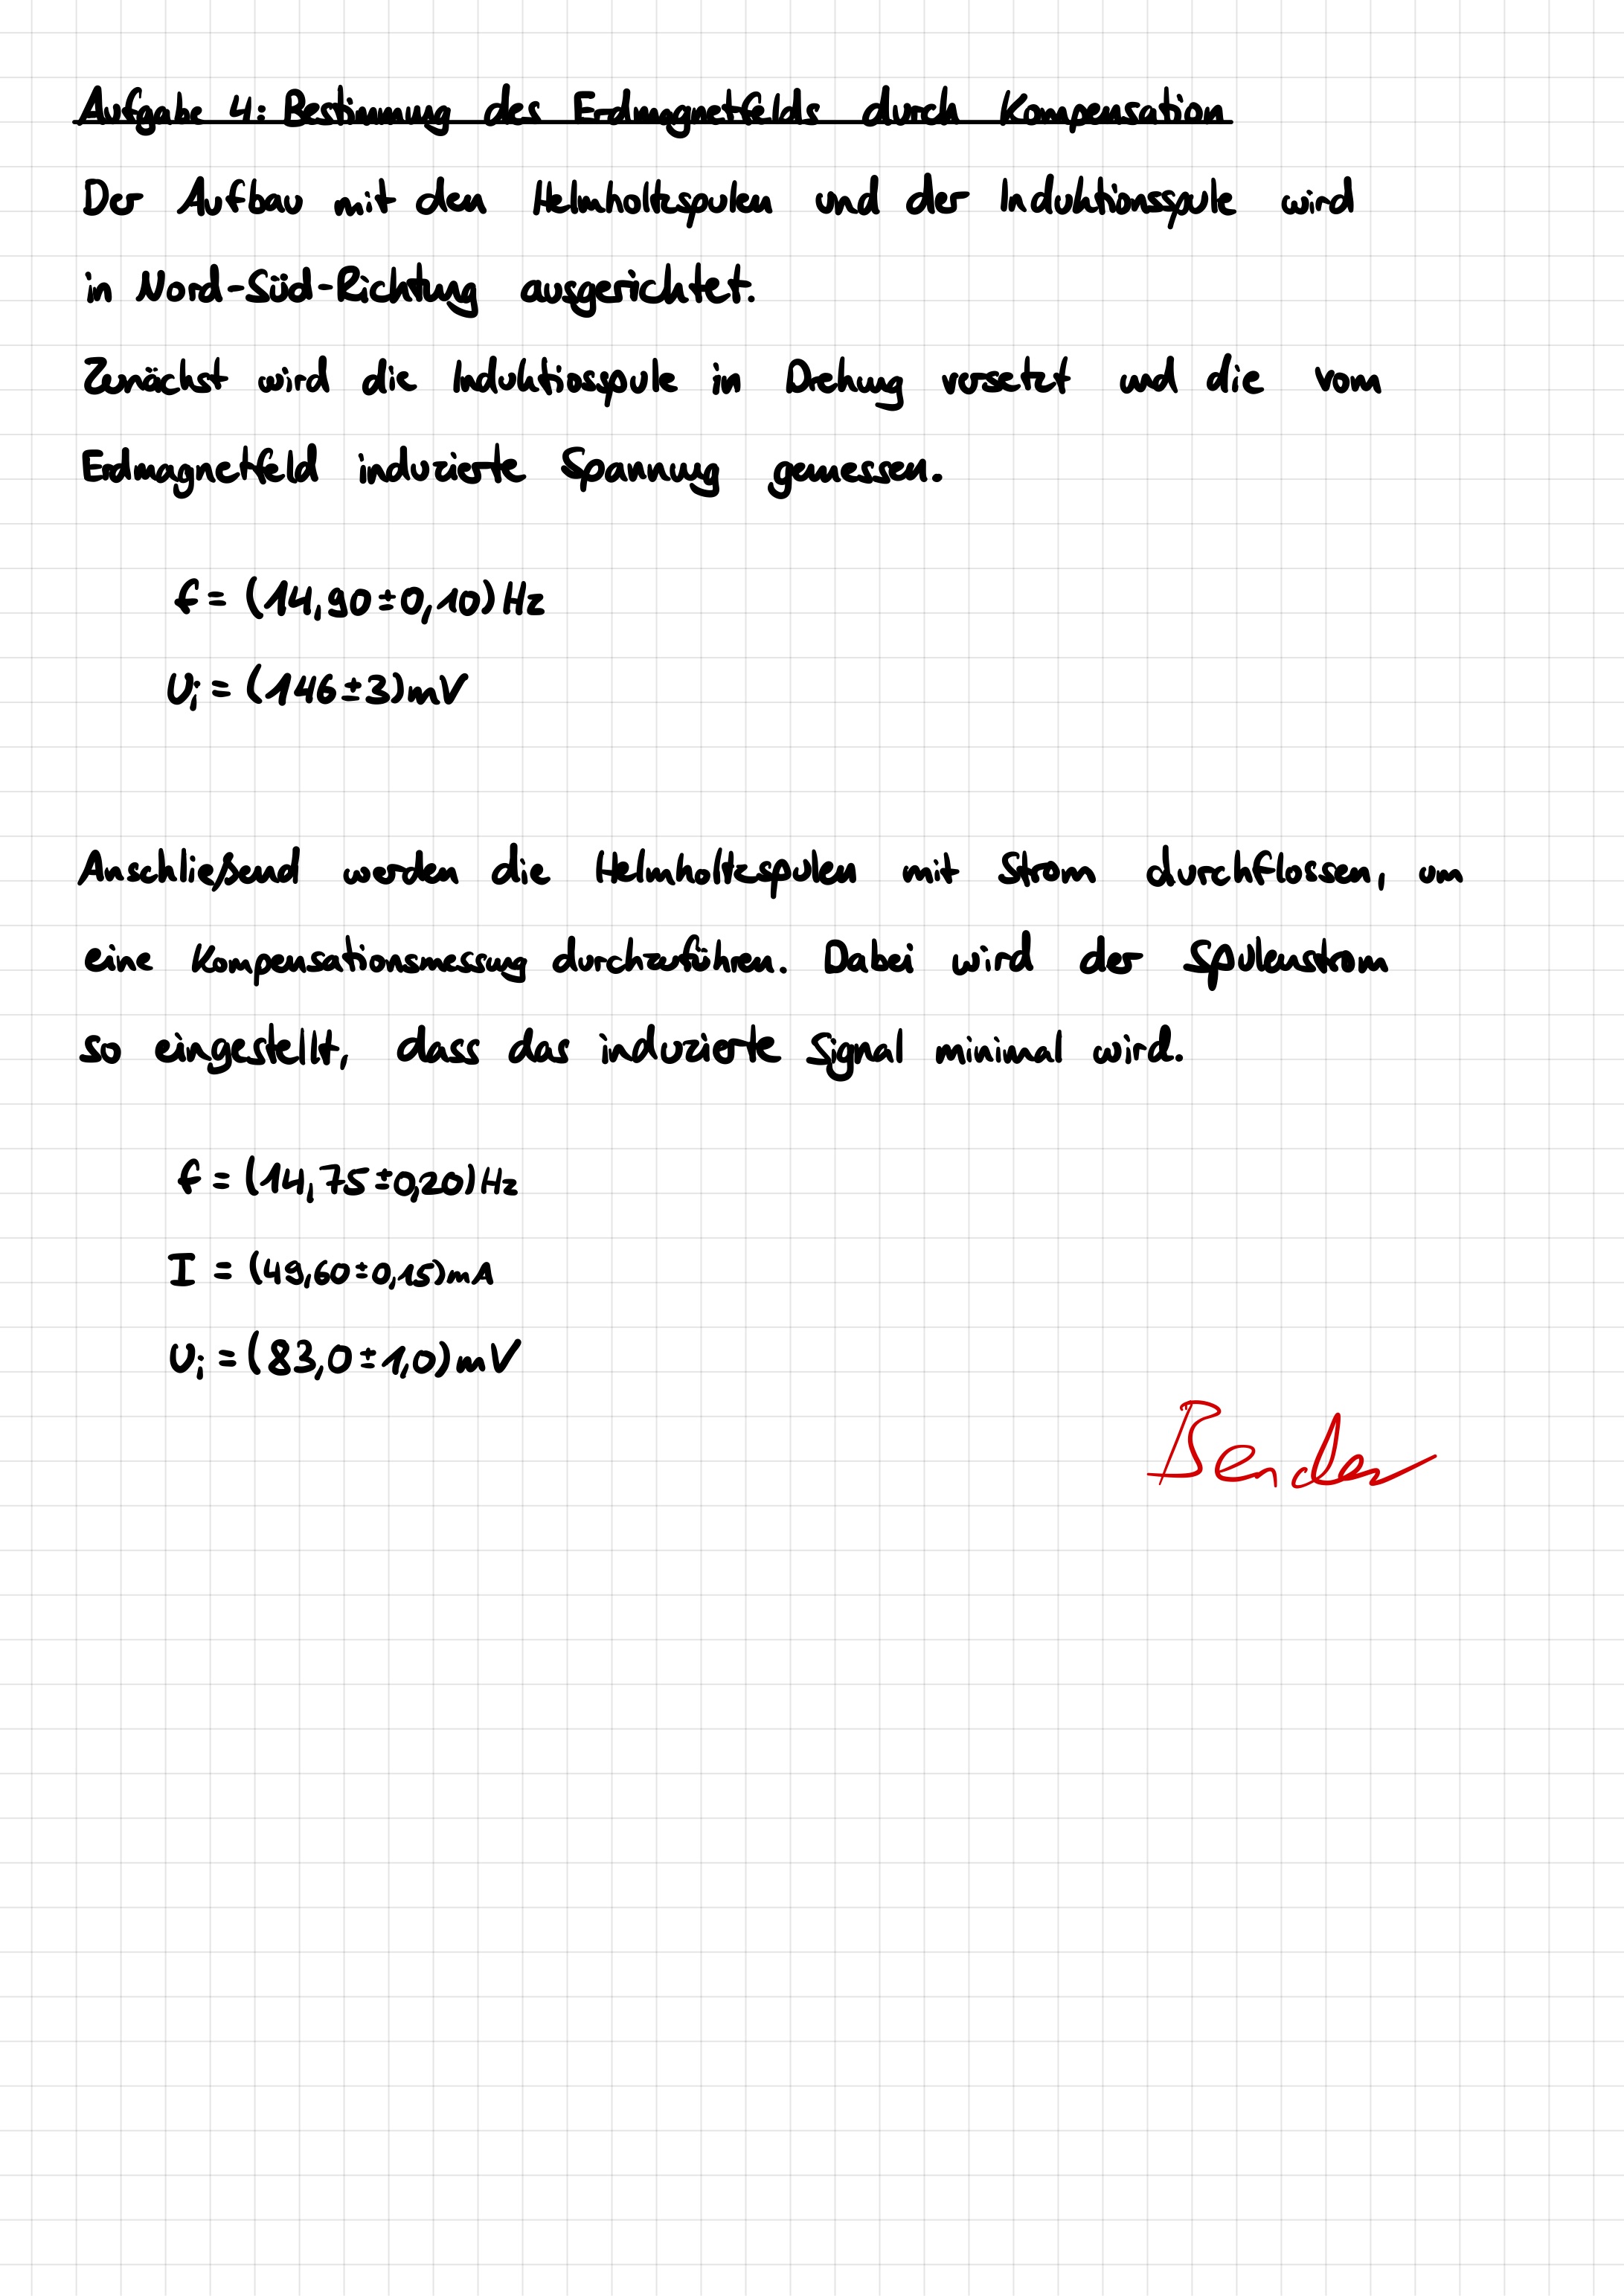 Aufgabe 4: Bestimmung des Erdmagnetfelds durch Kompensation
Der Aufbau mit den Helmholtzspulen und der Induktionsspule wird
in Nord-Süd-Richtung ausgerichtet.
Zunächst wird die Induktiosspule in Drehung versetzt und die vom
Erdmagnetfeld induzierte Spannung gemessen.
f = (14,90 ± 0,10) Hz
Ui = (146 ± 3) mV
Anschließend werden die Helmholtzspulen mit Strom durchflossen, um
eine Kompensationsmessung durchzuführen. Dabei wird der Spulenstrom
so eingestellt, dass das induzierte Signal minimal wird.
f = (14,75 ± 0,20) Hz
I = (49,60 ± 0,15) mA
Ui = (83,0 ± 1,0) mV
Bender